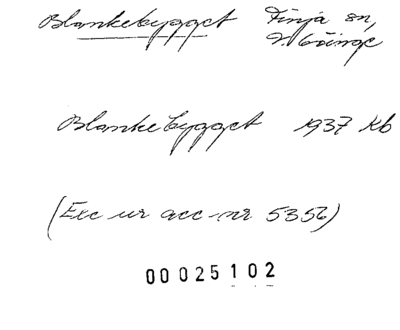 Blankebygget Finja sn,
V. Göinge
Blankebygget 1937 Kb
(Exc ur acc-nr 5356)
00025102